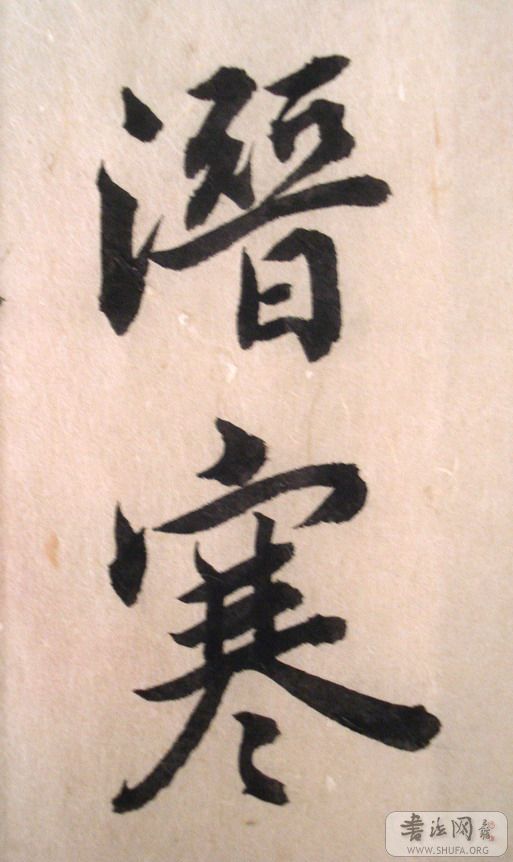 潛
寒
書法网
WWW.SHUFA.ORG